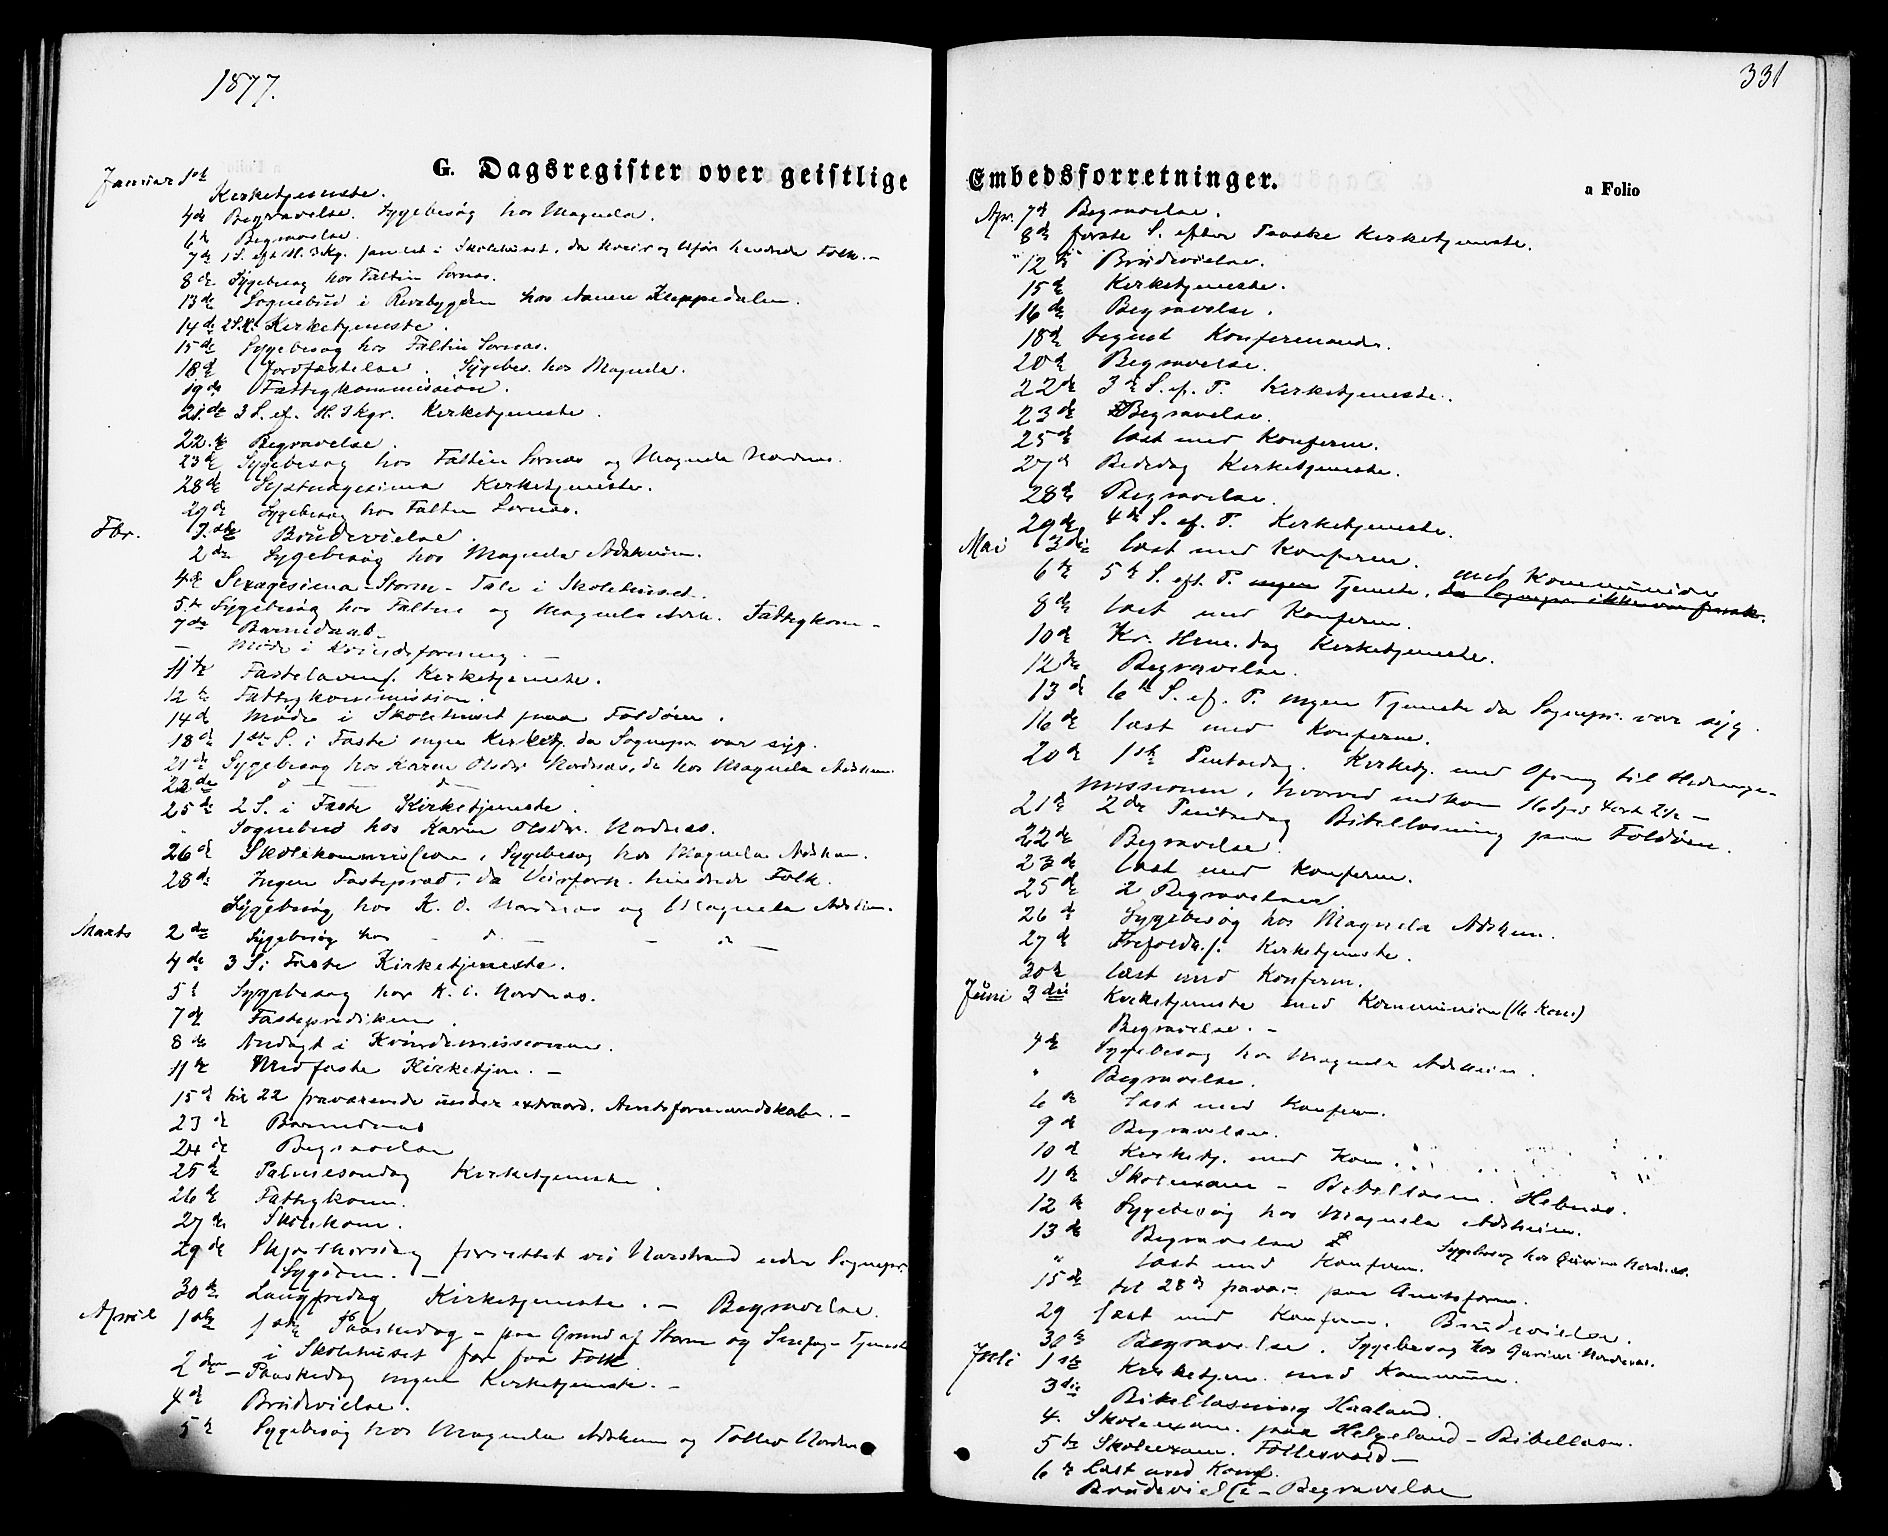 1877.
G. Dagsregister over geistlige
Januar 1ste
Kirketjeneste.
4de Begravelse. Sygebesøg hos Magnela.
6te Begravelse.
7de 1 S. eft. H. 3 Kg. samlet i Skolehuset, da Uveir og Usføre hindrede Folk. -
8de Sygebesøg hos Faltin Sornæs.
13de Sognebud i hos
14de 2 S. Kirketjeneste.
15de Sygebesøg hos Faltin Sornæs.
18de Jordfæstelse. Sygebes. hos Magnela.
19de Fattigkommission.
21de 3 S. ef. H. 3 kgr. Kirketjeneste.
22de Begravelse.
23de Sygebesøg hos Faltin Sornæs og Magnela Nordnæs.
28de Septuagesima Kirketjeneste.
29de Sygebesøg hos Faltin Sornæs.
Fbr. 1ste Brudevielse.
2den Sygebesøg hos Magnela Adsheim.
4de Sexagesima Storm - Tale i Skolehuset.
5te Sygebesøg hos Faltin og Magnela Adsh. Fattigkom -
7de Barnedaab.
- Møde i Kvindeforening. -
11te Fastelavns. Kirketjeneste.
12te Fattigkommission.
14de Møde i Skolehuset paa Foldøen.
18de 1ste S. i Faste ingen Kirketj. da Sognepr. var syg.
21de Sygebesøg hos Karen Olsdr Nordnæs, do hos Magnela Adsheim.
22de d - d -
25de 2 S. i Faste Kirketjeneste.
Sognebud hos Karen Olsdr. Nordnæs.
26de Skolekommission, Sygebesøg hos Magnela Adsheim.
28de Ingen Fastepræd. da Veirforh. hindrede Folk.
Sygebesøg hos K. O. Nordnæs og Magnela Adsheim.
Marts 2den Sygebesøg hos - d - - d -
4de 3 S. i Faste Kirketjeneste.
5te Sygebesøg hos K. O. Nordnæs.
7de Fasteprediken.
8de Andagt i Kvindemissionen.
11te Midfaste Kirketjen. -
15de til 22 fraværende under extraord. Amtsformandskabe. -
23de Barnedaab
24de Begravelse
25de Palmesøndag Kirketjeneste.
26de Fattigkom.
27de Skolekom.
29de Skjærthorsdag forrettet ved Nærstrand under Sognepr.
Sygdom. -
30te Langfredag Kirketjeneste. - Begravelse.
April 1ste 1ste Paaskedag - paa Grund af Storm og Snefog - Tjeneste
i Skolehuset for faa Folk.
2den - Paaskedag ingen Kirketjeneste. -
4de Brudevielse.
5te Sygebesøg hos Magnela Adsheim og Nordnæs
331
Embedsforretninger.
a Folio
Apr. 7de Begravelse.
8de første S. efter Paaske Kirketjeneste.
" 12te Brudevielse.
15de Kirketjeneste.
16de Begravelse.
18de begynt Konfermander.
20de Begravelse.
22de 3de S. ef. P. Kirketjeneste.
23de Begravelse.
25de læst med Konferm.
27de Bededag Kirketjeneste.
28de Begravelse.
29de 4de S. ef. P. Kirketjeneste.
Mai 3die læst med Konferm.
med Kommunion
6te 5te S. eft. P. ingen Tjeneste, da Sognepr. ikke var frisk.
8de læst med Konferm.
10de Kr. Hime. dag Kirketjeneste.
12te Begravelse.
13de 6te S. ef. P. ingen Tjeneste da Sognepr. var syg.
16de læst med Konferm.
20de 1ste Pintsedag. Kirketj. med Ofring til Hedninge-
missionen, hvorved indkom
21de 2den Pintsedag Bibellæsning paa Foldøen.
22de Begravelse.
23de læst med Konferm.
25de 2 Begravelser
26de Sygebesøg hos Magnela Adsheim.
27de Trefoldh.f. Kirketjeneste.
30te læst med Konferm.
Juni 3die Kirketjeneste med Kommunion (16 Kom.)
Begravelse. -
4de Sygebesøg hos Magnela Adsheim.
" Begravelse.
6te læst med Konferm.
9de Begravelse.
10de Kirketj. med Kom.
11te Skoleexam - Bibellæsn. Hebnæs.
12te Sygebesøg hos Magnela Adsheim.
13de Begravelse
" læst med Konferm. Sygebesøg hos Gurine Nordnæs.
15de til 28de fravær. paa Amtsform.
29 læst med Konferm. Brudevielse.
30te Begravelse. Sygebesøg hos Gurine Nordnæs.
Juli 1ste Kirketjen. med Kommun.
3die Bibellæsning Haaland.
4. Skoleexam. paa Helgeland - Bibellæsn.
5te Skoleexam. Follesvold -
6te læst med Konf.
Brudevielse - Begravelse